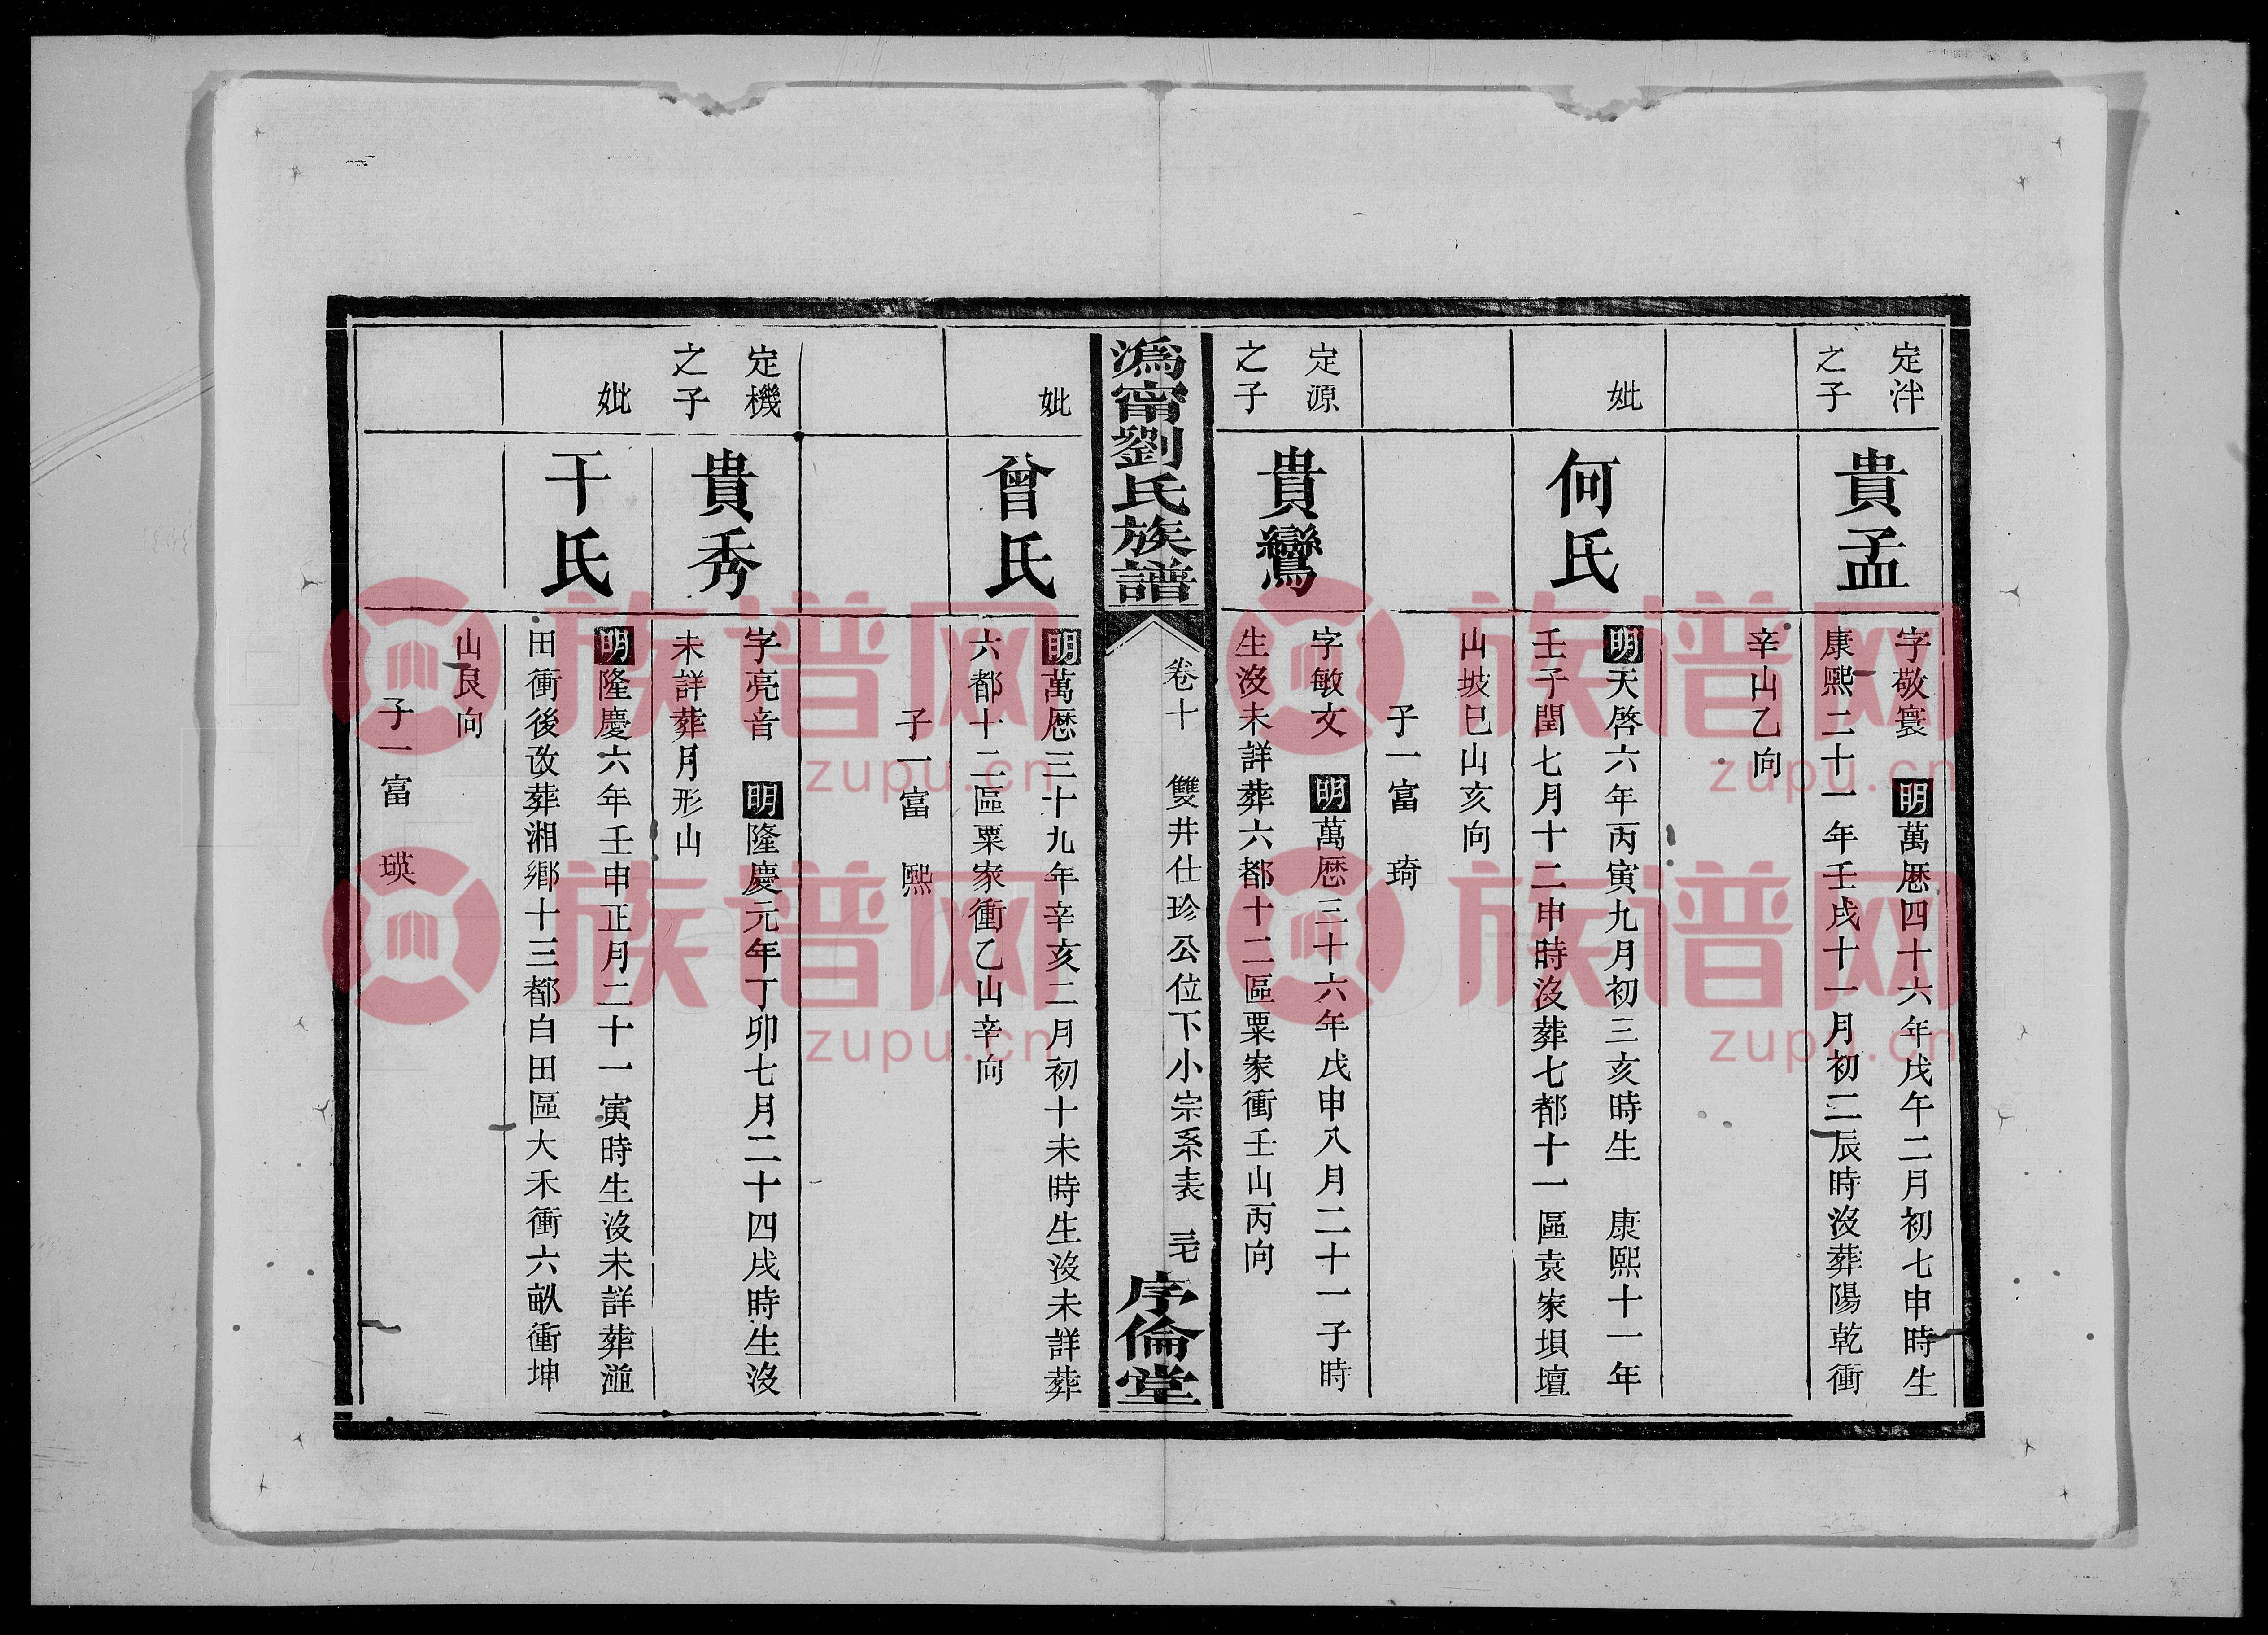 定泮
之子
貴孟
字敬寰 明萬厯四十六年戊午二月初七申時生
康熙二十一年壬戌十一月初二辰時沒葬陽乾衝
辛山乙向
妣
何氏
明天啓六年丙寅九月初三亥時生 康熙十一年
壬子閏七月十二申時沒葬七都十一區袁家垻壇
山坡巳山亥向
子一富 琦
定源
之子
貴鸞
字敏文 明萬厯三十六年戊申八月二十一子時
生沒未詳葬六都十二區粟家衝壬山丙向
溈甯劉氏族譜
卷十 雙井仕珍公位下小宗系表 三七
序倫堂
妣
曾氏
明萬厯三十九年辛亥二月初十未時生沒未詳葬
六都十二區粟家衝乙山辛向
子一富 熙
定機
之子
貴秀
字亮音 明隆慶元年丁卯七月二十四戌時生沒
未詳葬月形山
妣
干氏
明隆慶六年壬申正月二十一寅時生沒未詳葬
田衝後改葬湘鄉十三都白田區大禾衝六畝衝坤
山艮向
子一富 瑛
族谱网
zupu.cn
族谱网
zupu.cn
族谱网
zupu.cn
族谱网
zupu.cn